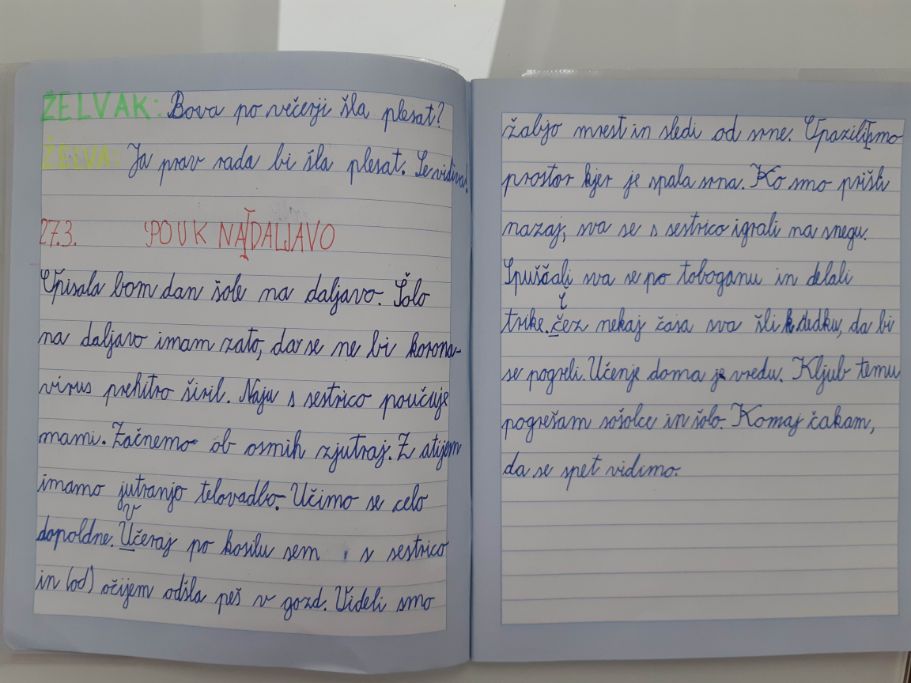 ŽELVAK: Bova po večerji šla plesat?
ŽELVA: Ja prav rada bi šla plesat. Se vidiva!
27.3. POUK NA DALJAVO
Opisala bom dan šole na daljavo. Šolo
na daljavo imam zato, da se ne bi korona-
virus prehitro širil. Naju s sestrico poučuje
mami. Začnemo ob osmih zjutraj. Z atijem
imamo jutranjo telovadbo. Učimo se celo
dopoldne. Včeraj po kosilu sem s sestrico
in (od) očijem odšla peš v gozd. Videli smo
žabjo mrest in sledi od srne. Opazili smo
prostor kjer je spala srna. Ko smo prišli
nazaj, sva se s sestrico igrali na snegu.
Spuščali sva se po toboganu in delali
trike. Čez nekaj časa sva šli k dedku, da bi
se pogreli. Učenje doma je vredu. Kljub temu
pogrešam sošolce in šolo. Komaj čakam,
da se spet vidimo.